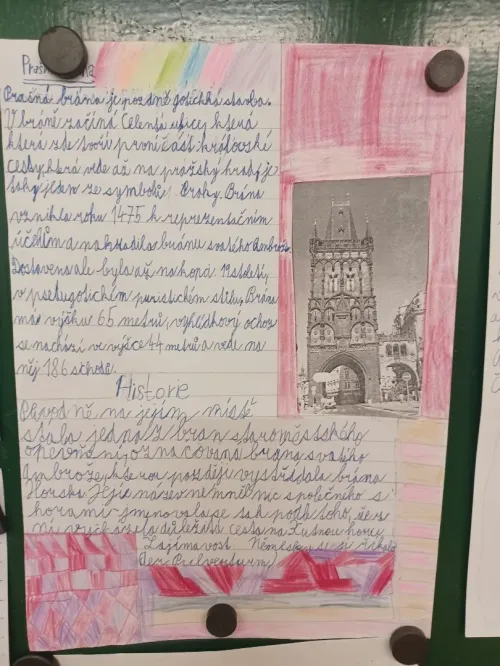 Prašná brána
Prašná brána je pozdně gotichká stavba.
V bráně začíná Celentá ulice, která
která zde tvoří první část královské
cesty, která vede až na pražský hrad, je
taky jeden ze symbolů Prahy. Brána
vznikla roku 1475 k reprezentačním
účelům a nahradila bránu svatého Ambrože
Dostavena ale byla až na konci 19 století
v pseugotickém puristickém stilu. Brána
má výšku 65 metrů, vyhlídkový ochoz
se nachází ve výšce 44 metrů a vede na
něj 186 schodů.
Historie
Původně na jejím místě
stála jedna z bran staroměstského
opevnění označovaná brána svatého
Ambrože, kterou později vystřídala brána
Horská Jejíž název neměl nic společného s
horami jmenovala se tak podle toho, že z
ní vycházela důležitá cesta na Kutnou horu
Zajímavost Německy se jí říkalo
Der Pulverturm